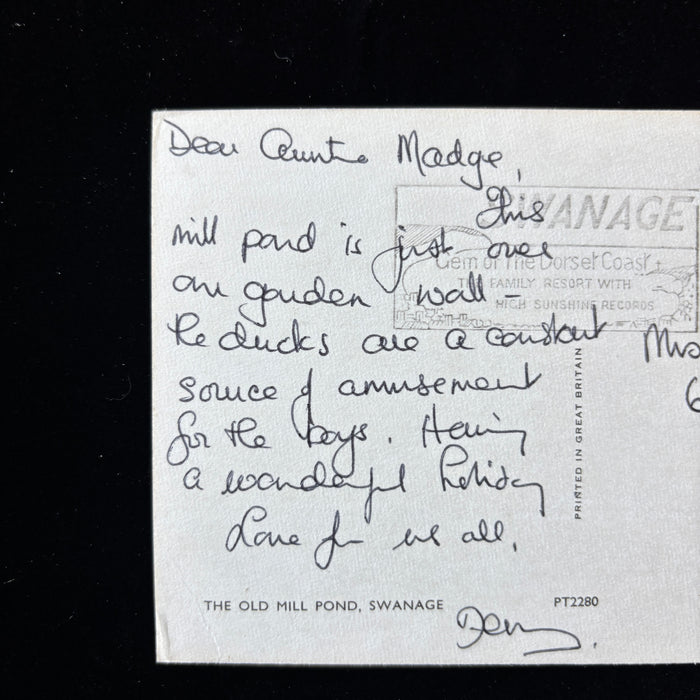 Dear Auntie Madge,
This
mill pond is just over
our garden wall –
the ducks are a constant
source of amusement
for the boys. Having
a wonderful holiday
Love fr us all,
SWANAGE
Gem of The Dorset Coast
THE FAMILY RESORT WITH
HIGH SUNSHINE RECORDS
PRINTED IN GREAT BRITAIN
Mrs
6
THE OLD MILL POND, SWANAGE
PT2280